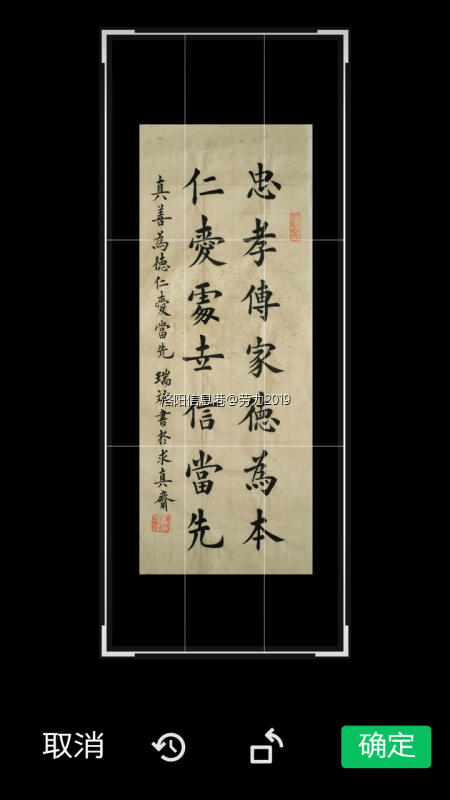 忠孝傳家德為本
仁愛處世信當先
真善為德仁愛當先 瑞 書於求真齋
洛阳信息港@劳力2019
取消
确定